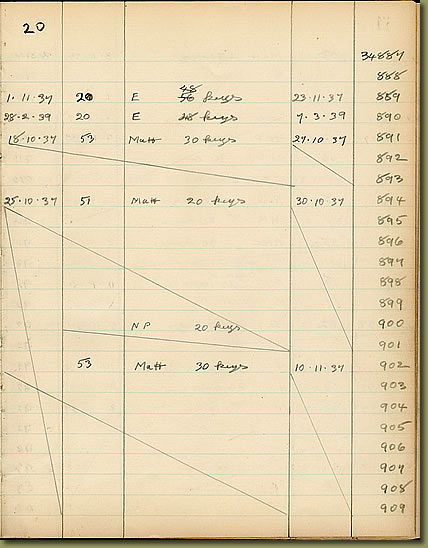 20
34887
888
48
1.11.37 20 E 56 keys 23.11.37 889
28.2.39 20 E 28 keys 7.3.39 890
18.10.37 53 Matt 30 keys 27.10.37 891
892
893
25.10.37 51 Matt 20 keys 30.10.37 894
895
896
897
898
899
NP 20 keys 900
901
53 Matt 30 keys 10.11.37 902
903
904
905
906
907
908
909